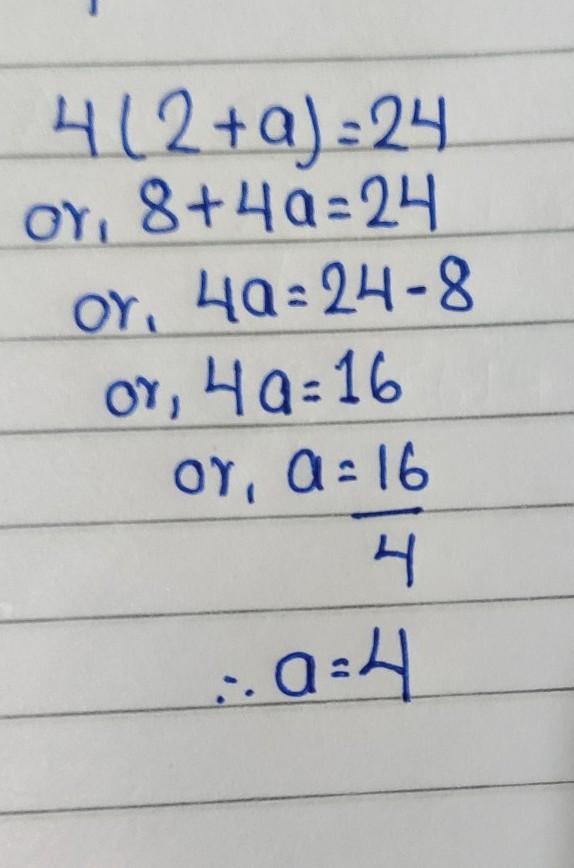 4(2+a)=24
or, 8+4a=24
or, 4a=24-8
or, 4a=16
or, a=16/4
∴ a=4